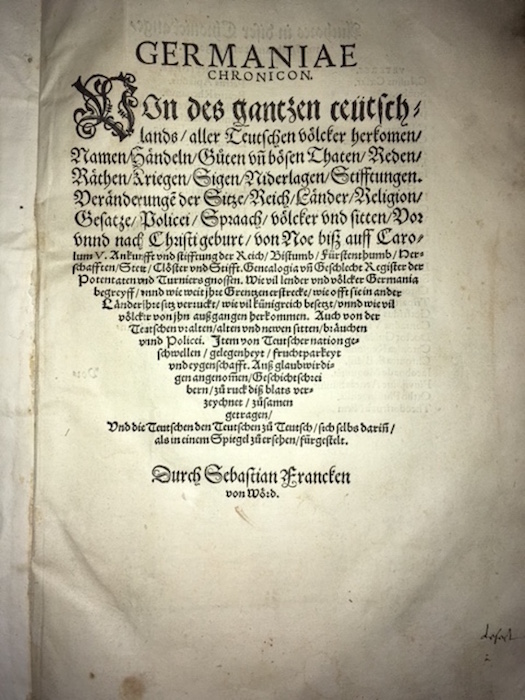 GERMANIAE
CHRONICON.
VOn des gantzen teütsch-
lands / aller Teutschen völcker herkomen /
Namen / Händeln / Gůten vñ bösen Thaten / Reden /
Räthen / Kriegen / Sigen / Niderlagen / Stifftungen.
Veränderungẽ der Sitze / Reich / Länder / Religion /
Gesatze / Policei / Spraach / völcker vnd sitten / Vor
vnnd nach Christi geburt / von Noe biß auff Caro-
lum V. Ankunfft vnd stifftung der Reich / Bistumb / Fürstenthumb / Her-
schafften / Stett / Clöster vnd Stifft. Genealogia vñ Geschlecht Register der
Potentaten vnd Turniers gnossen. Wie vil lender vnd völcker Germania
begreyff / vnnd wie weit jhre Grentzen erstrecke / wie offt sie in ander
Länder ihre setz verruckt / wie vil künigreich besetzt / vnnd wie vil
völcker von jhn außgangen herkommen. Auch von der
Teutschen vralten / alten vnd newen sitten / bräuchen
vnnd Policei. Item von Teutscher nation ge-
schwellen / gelegenheyt / fruchtparkeyt
vnd eygenschafft. Auß glaubwirdi-
gen angenom̃en / Geschichtschrei
bern / zů ruck diß blats ver-
zeychnet / zůsamen
getragen /
Vnd die Teutschen den Teutschen zů Teutsch / sich selbs dariñ /
als in einem Spiegel zů ersehen / fürgestelt.
Durch Sebastian Francken
von Wörd.